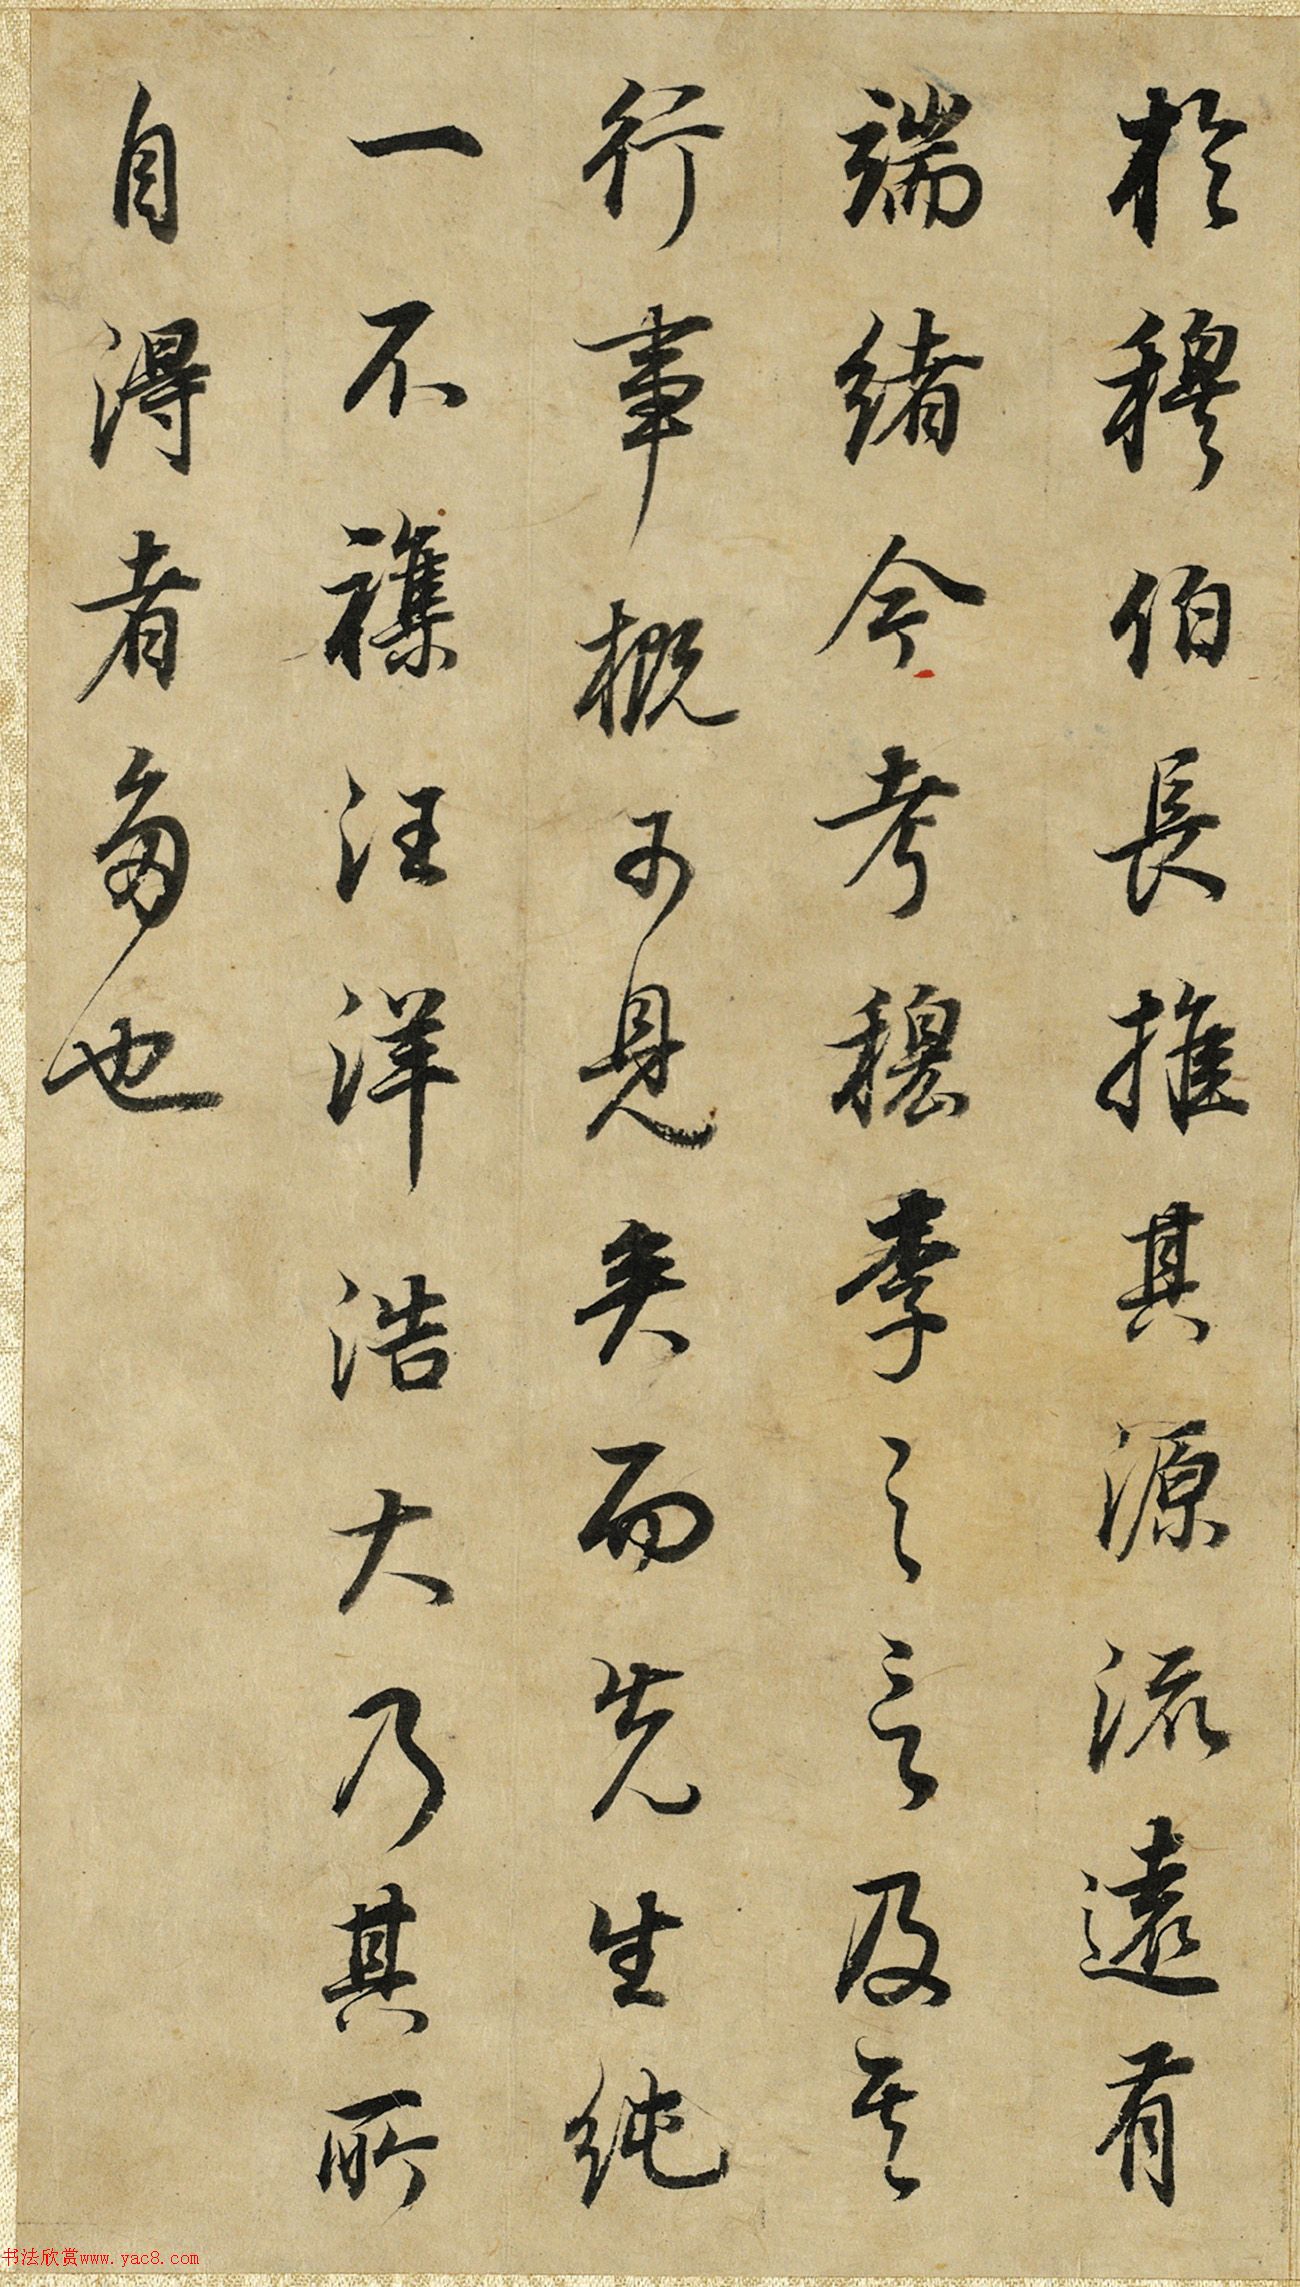 於穆伯長推其源流遠有
端緒今考穆李之言及其
行事概可見矣而先生純
一不雜汪洋浩大乃其所
自得者多也
书法欣赏www.yac8.com